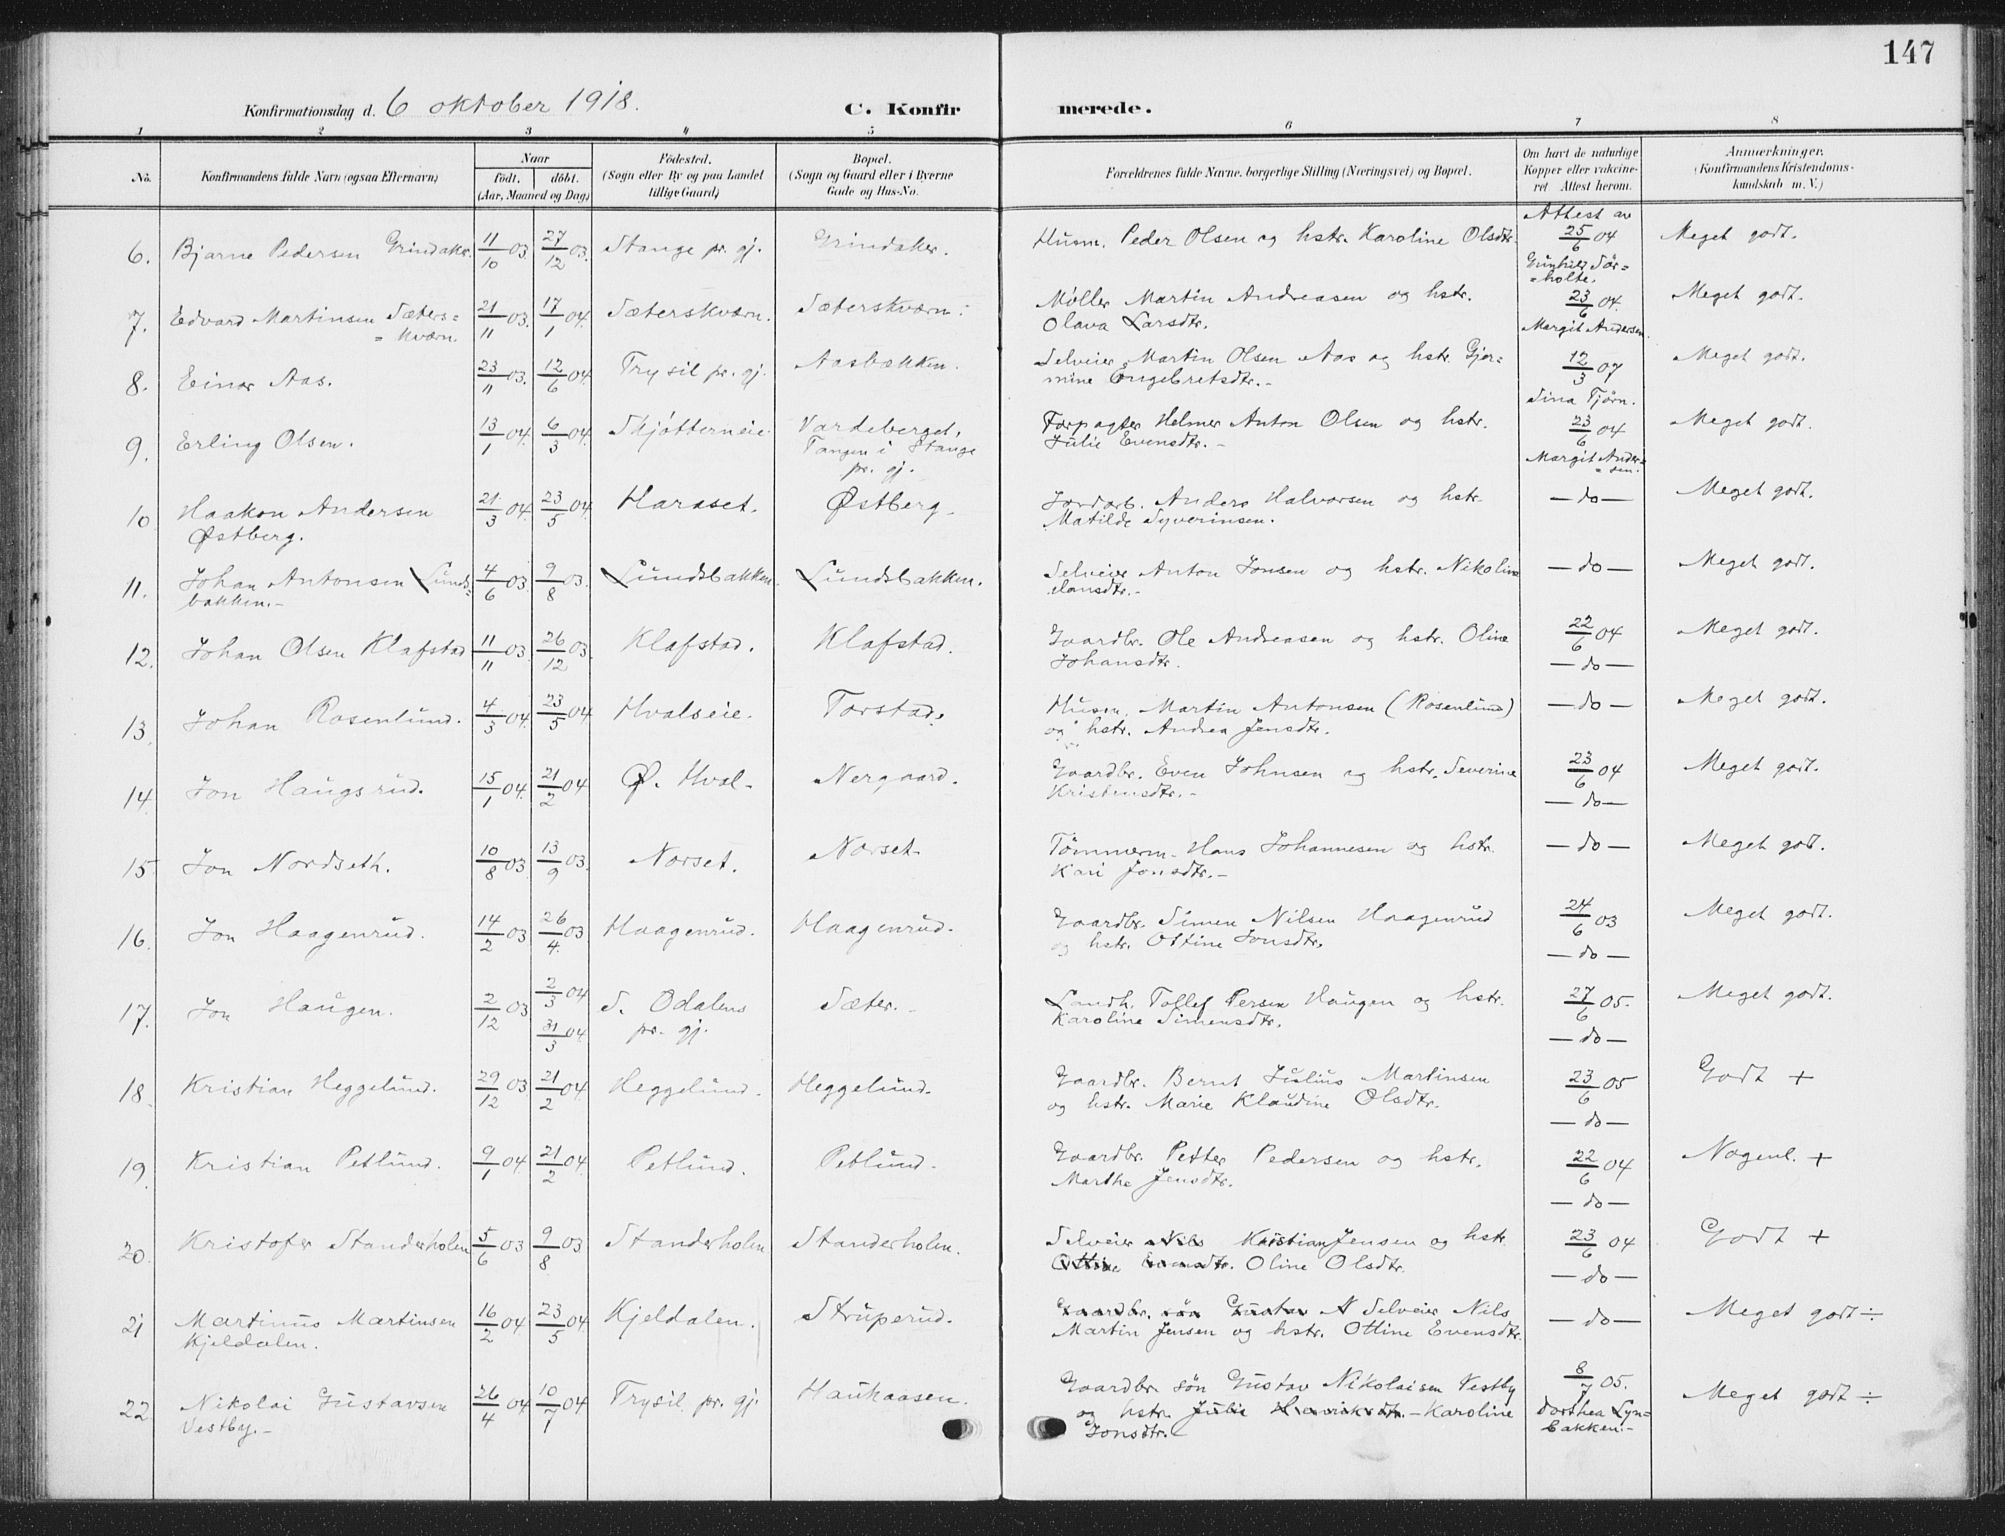 147
Konfirmationsdag d. 6 oktober 1918. C. Konfirmerede.
1 2 3 4 5 6 7 8
No. Konfirmandens fulde Navn (ogsaa Efternavn) Naar født. døbt. (Aar, Maaned og Dag) Fødested. (Sogn eller By og paa Landet tillige Gaard) Bopæl. (Sogn og Gaard eller i Byerne Gade og Hus-No. Forældrenes fulde Navne, borgerlige Stilling (Næringsvei) og Bopæl. Om havt de naturlige Kopper eller vakcineret. Attest herom. Anmærkninger. (Konfirmandens Kristendomskundskab m. V.)
6. Bjarne Pedersen Grindaker. 11/10 03. 27/12 03. Stange pr. gj. Grindaker. Husm. Peder Olsen og hstr. Karoline Olsdtr. Attest av 25/6 04 Gunhild Sør= =holte. Meget godt.
7. Edvard Martinsen Sæters= =kværn. 21/11 03. 17/1 04. Sæterskværn. Sæterskværn. Møller Martin Andreasen og hstr. Olava Larsdtr. 23/6 04. Margit Andersen Meget godt.
8. Einar Aas. 23/11 03. 12/6 04. Trysil pr. gj. Aasbækken. Selveier Martin Olsen Aas og hstr. Gjermine Engebretsdtr.- 12/3 07 Sina Tjørn. Meget godt.
9. Erling Olsen. 13/1 04. 6/3 04. Skjøtterneie. Vardeberget, Tangen i Stange pr. gj. Forpagter Helmer Anton Olsen og hstr. Julie Evensdtr.- 23/6 04 Margit Ander= =sen. Meget godt.
10 Haakon Andersen Østberg. 21/3 04. 23/5 04. Haraset. Østberg. Jordarb. Anders Halvorsen og hstr. Matilde Syverinsen. — do — Meget godt.
11. Johan Antonsen Lunds= bakken.- 4/6 03. 9/8 03. Lundsbakken. Lundsbakken. Selveier Anton Jonsen og hstr. Nikoline Hansdtr.- — do — Meget godt.
12. Johan Olsen Klafstad 11/11 03. 26/12 03. Klafstad. Klafstad. Gaardbr. Ole Andreasen og hstr. Oline Johansdtr. 22/6 04 — do — Meget godt.
13. Johan Rosenlund. 4/3 04. 23/5 04 Hvalseie. Torstad. Husm. Martin Antonsen (Rosenlund) og hstr. Andrea Jensdtr. — do — Meget godt.
14. Jon Haugsrud. 15/1 04. 21/2 04 Ø. Hval. Nergaard. Gaardbr. Even Johnsen og hstr. Severine Kristensdtr.- 23/6 04 — do — Meget godt.
15 Jon Nordseth. 10/8 03. 13/9 03. Norset. Norset. Tømmerm. Hans Johannesen og hstr. Kari Jonsdtr.- — do — Meget god.
16. Jon Haagenrud. 14/2 03 26/4 03 Haagenrud. Haagenrud. Gaardbr. Simen Nilsen Haagenrud og hstr. Ottine Jonsdtr. 24/6 03 — do — Meget godt.
17. Jon Haugen. 2/12 03 2/3 04 31/3 04. S. Odalens pr. gj. Sæter. Landh. Tollef Persen Haugen og hstr. Karoline Simensdtr. 27/6 05. — do — Meget godt.
18. Kristian Heggelund. 29/12 03 21/2 04. Heggelund. Heggelund. Gaardbr. Bernt Julius Martinsen og hstr. Marie Klaudine Olsdtr. 23/6 05 — do — Godt +
19. Kristian Petlund. 9/1 04. 21/2 04. Petlund. Petlund. Gaardbr. Petter Pedersen og hstr. Marthe Jensdtr. 22/6 04 — do — Nogenl. +
20. Kristofer Standerholen 5/6 03 9/8 03 Standerholen Standerholen. Selveier Nils Kristian Jensen og hstr. Ottine Evensdtr. Oline Olsdtr. 23/6 04 — do — Godt +
21 Martinus Martinsen Kjeldalen. 16/2 04 23/5 04 Kjeldalen. Struperud. Gaardbr. søn Gustav N Selveier Nils Martin Jensen og hstr. Ottine Evensdtr. — do — Meget godt ÷
22 Nikolai Gustavsen Vestby.- 26/4 04 10/7 04 Trysil pr. gj. Haukaasen. Gaardbr. søn Gustav Nikolaisen Vestby og hstr. Julie - Karoline Jonsdtr. 8/7 05. Dorthea Lyn= bakken.- Meget godt ÷